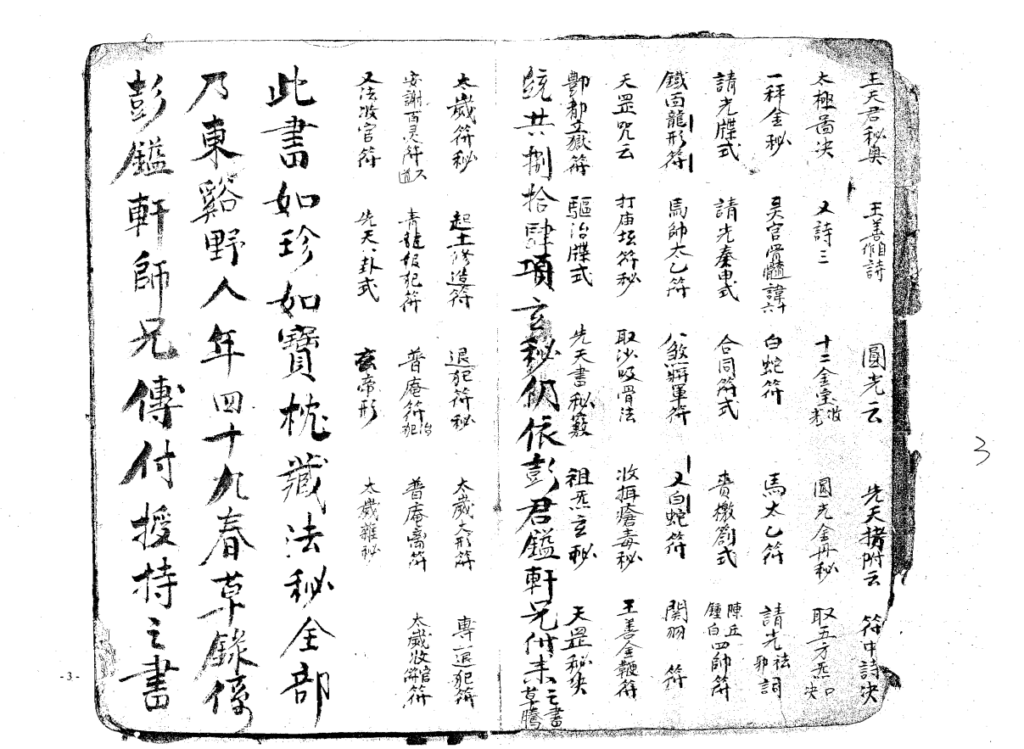 王天君秘奥　王善作詩　圓光云　先天撐附云　符中詩决
太極畨决　又詩三　十二金堂　圓光金丹秘　取五方炁口决
一秤金秘　吴官骨髓諱六十　白蛇符　馬太乙符　請光祛邪詞
請光牒式　請光奏申式　合同符式　賫檄劄式　陳丘鍾白四帥符
鐵面龍形符　馬帥太乙符　八煞將軍符　又白蛇符　関羽符
天罡咒云　打庙坛符秘　取沙吸骨法　收瘟毒秘　王善金鞭符
酆都立獄符　驅治牒式　先天書秘竅　祖炁玄秘　天罡秘决
統共捌拾肆項玄秘仍依彭君鑑軒兄付来之書草騰
太歲符秘　起土修造符　退犯符秘　太歲火形符　專一退犯符
安謝百灵符　青龍报犯符　普庵符治犯　普庵斋符　太歲收官符
又法收官符　先天八卦式　玄帝形　太歲雜秘
此書如珍如寳枕藏法秘全部
乃東谿野人年四十九春草録係
彭鑑軒師兄傳付授持之書
- 3 -
3